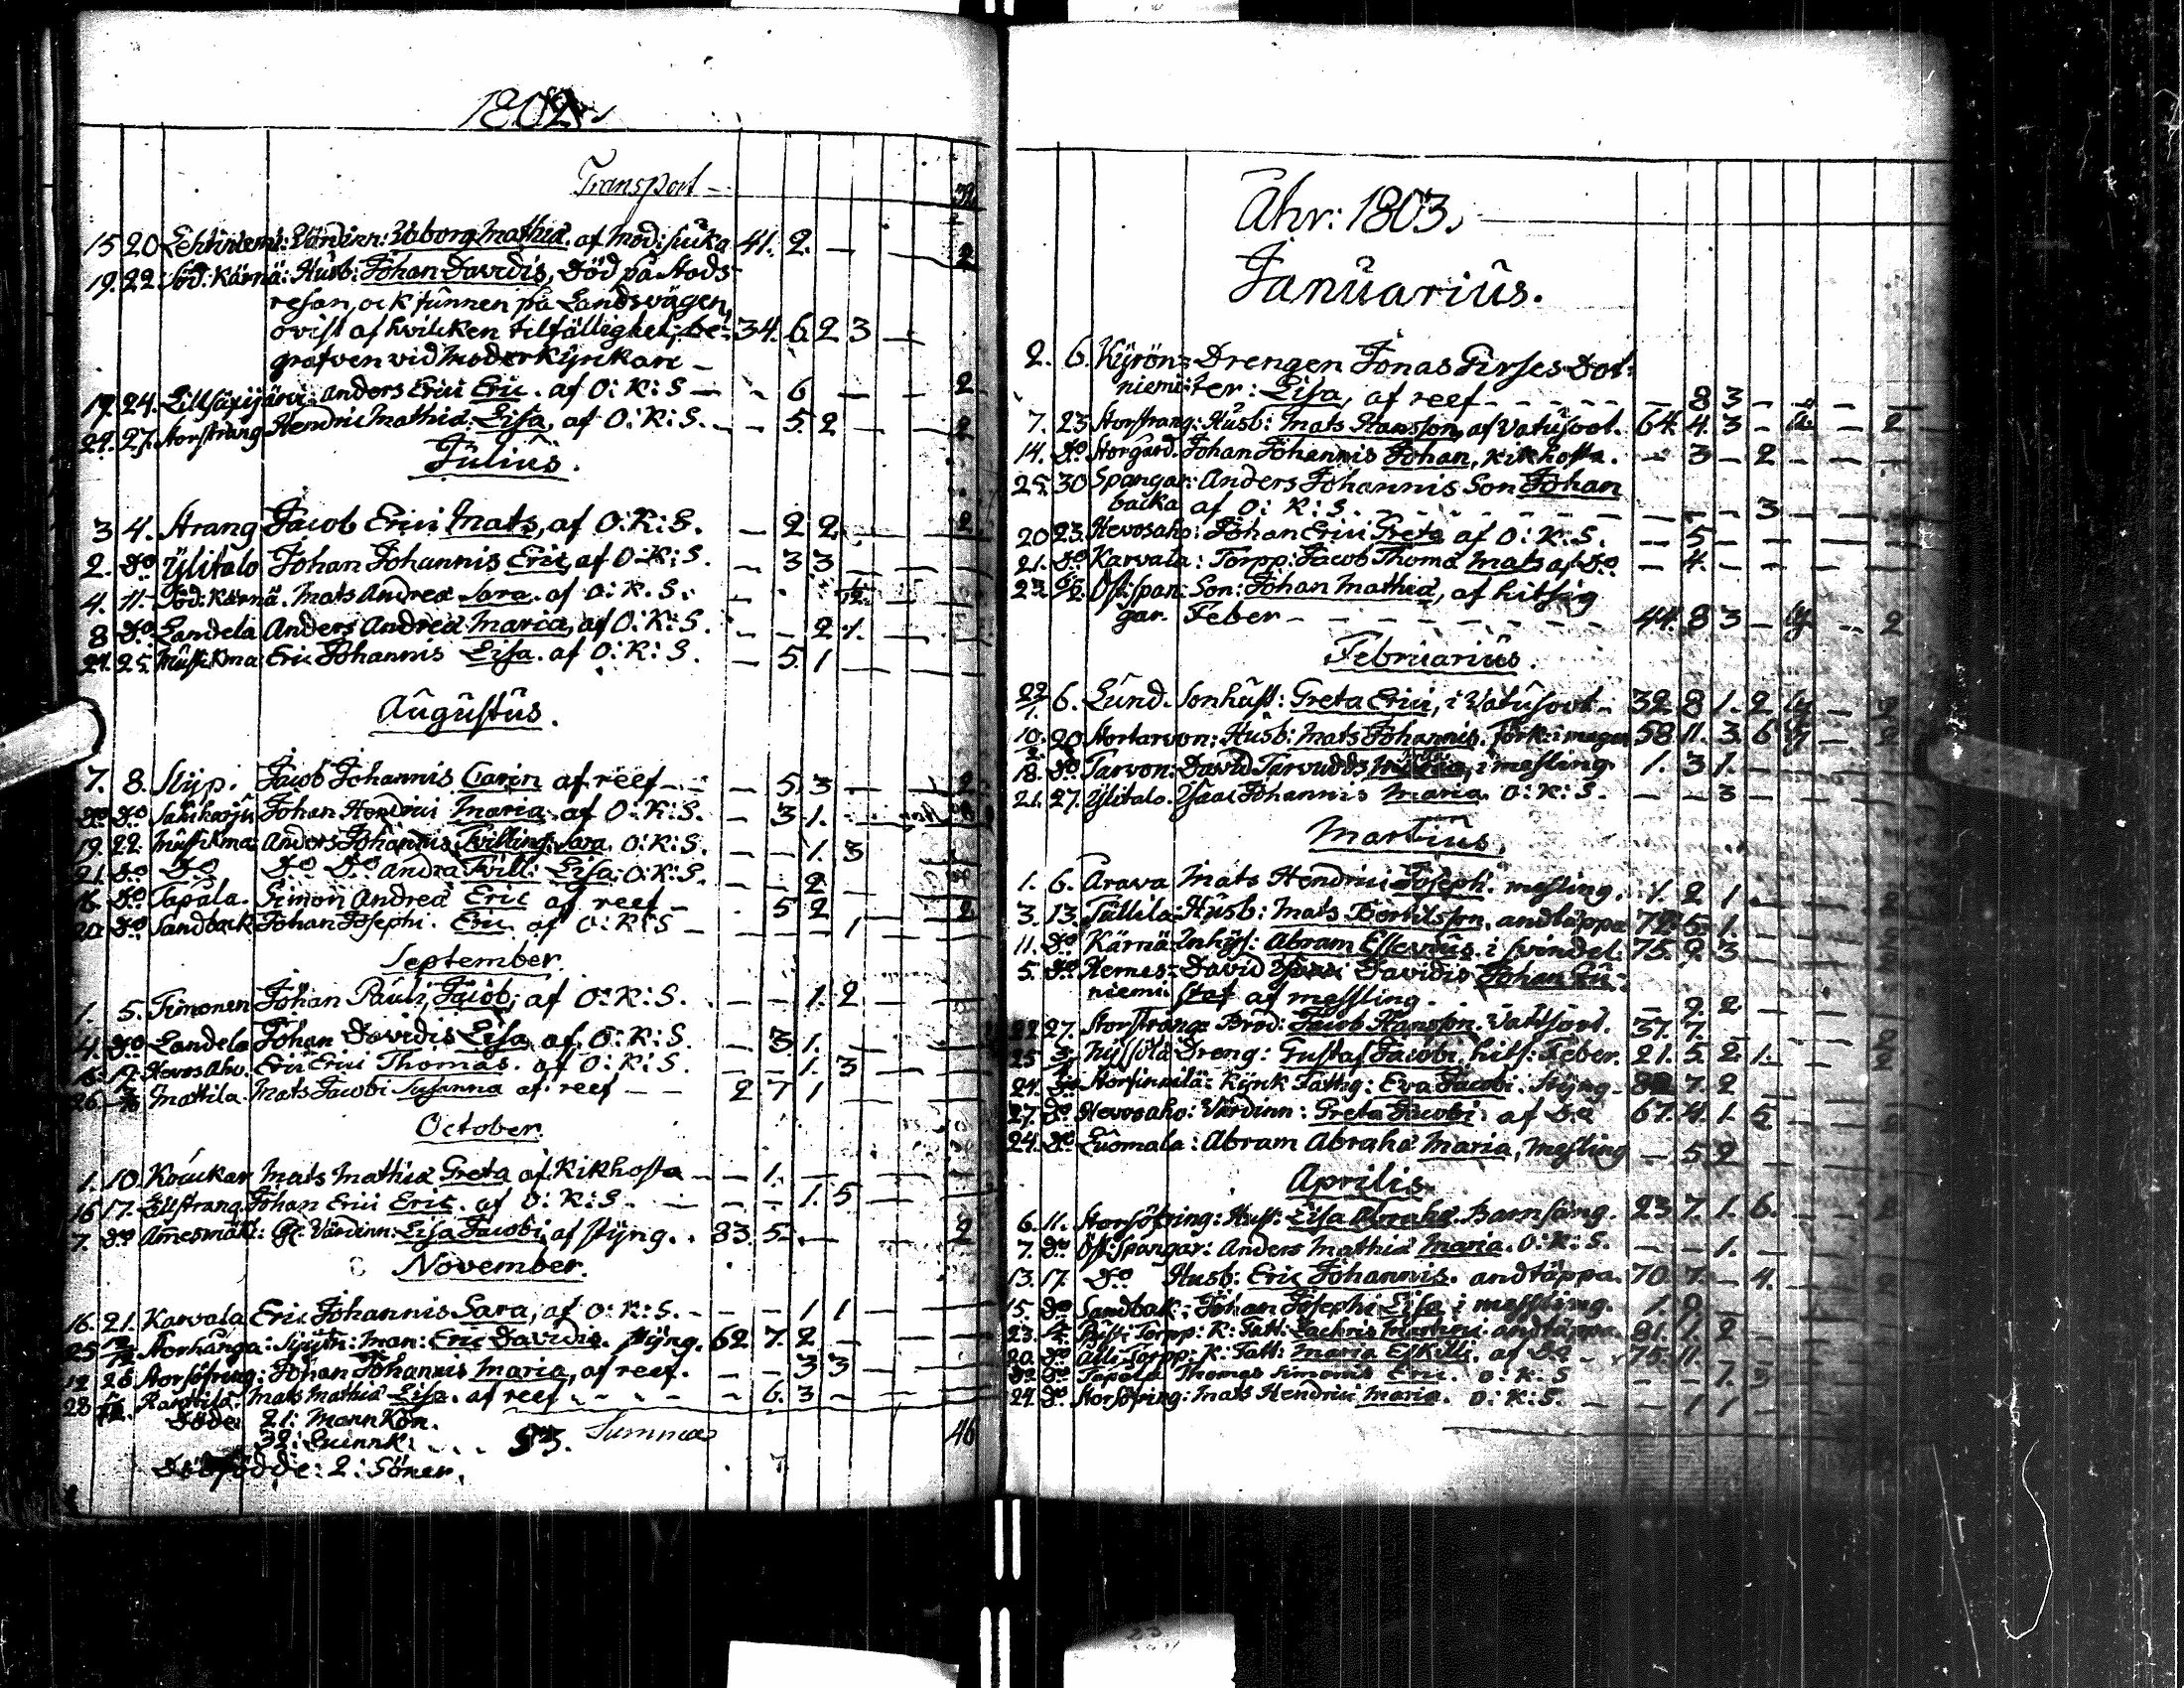 1802
Transport — 32
15 20 Lehtiniemi: Värdinn: Waborg Mathiæ. af Mod: siuka 41. 2. — 2
19. 22. Söd: Kärnä: Husb: Johan Davidis, död på Stads-
resan, ock funnen på Landsvägen,
ovist af hvilcken tilfällighet; be- 34. 6. 2 3 —
grafven vid Moderkyrkan —
19. 24. Lillsäxijärvi: Anders Erici Eric. af O: K: S — — 6 — — 2
24. 27. Storstrang Hendric Mathiæ: Lisa, af O: K: S. — — 5. 2 — 2
Julius.
3 4. Strang Jacob Erici Mats, af O: K: S. — 2 2 — 2
2. Do Ylitalo Johan Johannis Eric, af O: K: S. — 3 3 — —
4. 11. Söd: Kärnä. Mats Andreæ Sara. af O: K: S. —
8 Do Landela Anders Andreæ Maria, af O: K: S. — — 2 1. —
24. 25. Musikma: Eric Johannis Lisa. af O: K: S. — 5. 1 —
Augustus.
7. 8. Slip. Jacob Johannis Carin af reef — — 5. 3 — — 2
Do Do Johan Hendrici Maria. af O: K: S. — 3 1.
19. 22. Musikma: Anders Johannis Tvilling: Sara. O: K: S. — — 1. 3
21. Do Do Do Do andra Tvill: Lisa. O: K: S. — — 2 —
16. Do Tapala. Simon Andreæ Eric af reef — . 5 2 — 2
20. Do Sandback Johan Josephi. Eric. af O: K: S — — — 1
September.
1. 5. Timonen Johan Pauli, Jacob, af O: K: S. — — 1. 2
4. Do Landela Johan Davidis Lisa, af. O: K: S. — 3. 1. —
16. 19. Hevos Aho. Eric Erici Thomas. af O: K: S. — — 1. 3
26. Mattila. Mats Jacobi Susanna af reef — — 2 7 1 —
October.
1. 10. Kåuckar Mats Mathiæ Greta af Kikhosta — — 1. —
16 17. Lillstrang Johan Erici Eric. af O: K: S — — — 1. 5 —
7. Do Värdinn: Lisa Jacobi, af styng. . 83. 5. — 2
November.
16. 21. Karvala Eric Johannis Sara, af O: K: S. — — — 1 1 —
25 Storhånga: Man: Eric Davidis. Styng. 62 7. 2 —
19 26 Storsöfring: Johan Johannis Maria, af reef. — — 3 3 —
28 Ranttila. Mats Mathiæ Lisa. af reef — — — — 6. 3 —
Döde: 21: Mannkön.
32: Quinnk: . . . 53. Summa 46
Dödfödde: 2: Söner.
Åhr: 1803.
Januarius.
2. 6. Kyrön- Drengen Jonas Girses Dot-
niemi: ter: Lisa, af reef — — — — 8 3 —
7. 23 Storstrang: Husb: Mats Hansson, af Vatusoot. 64. 4. 3 — — 2
14. Do Storgård. Johan Johannis Johan, kikhosta. — 3 — 2 — —
25. 30 Spangar: Anders Johannis Son Johan
backa af O: K: S. — — — — 3 —
20 23. Hevosaho: Johan Erici Greta af O: K: S. — 5 —
21. Do Karvala: Torpp: Jacob Thomæ Mats af Do — 4. —
23 6/2 Öst: span: Son: Johan Mathiæ, af hitsig
gar. Feber — — — 44. 8 3 — — 2
Februarius.
22/1. 6. Lund. Sonhust: Greta Erici, i Vatusoot — 32. 8 1. 2 — 2
10. 20 Stortarvon: Husb: Mats Johannis. 58. 11. 3. 6 — 2
18. Do Tarvon: David i mesling. 1. 3 1. —
21. 27. Ylitalo. Isaac Johannis Maria. O: K: S. — — 3 —
Martius.
1. 6. Arava Mats Hendrici Joseph. mesling. 1. 2 1 — 2
3. 13. Tallila: Husb: Mats Bertilsson. andtäppa 5. 1. — 2
11. Do Kärnä Inhys: Abram i svindel. 75. 9. 3 — 2
5. Do Hernes- David Davidis Johan Gu-
niemi staf af messling. — 9. 2 —
22 27. Storstrang: Bröd: Jacob Hansson. Vatusoot. 37. 7. — 2
25 3. Dreng: Gustaf Jacobi. hits: Feber. 21. 5. 2 1. — 2
24. Do Storsinnilä: Kyrk Fattig: Eva Jacobi. Styng — 7. 2
27. Do Hevosaho: Värdinn: Greta Jacobi. af Do 67. 4. 1. 5 —
24. Do Luomala: Abram Abrahæ Maria, Mesling — 5 2 —
Aprilis.
6. 11. Storsöfring: Hust: Lisa Abrahæ. Barnsäng. 23 7. 1. 6. — 2
7. Do Öst: spangar: Anders Mathiæ Maria. O: K: S. — — 1. —
13. 17. Do Husb: Eric Johannis. andtäppa. 70. 7. — 4. — 2
15. Do Sandbak: Johan Josephi Lisa i messling. 1. 9. —
23. Torpp: K: Fatt: Zachris Martini andtäppa. 81. 1. 2 —
20. Do Torpp: K: Fatt: Maria Eskilli. af Do — 75. 11. —
Do Do Tapala Thomas Simonis Eric. O: K: S — — 1. 3
24. Do Storsöfring: Mats Hendrici Maria. O: K: S. — — 1 1 —